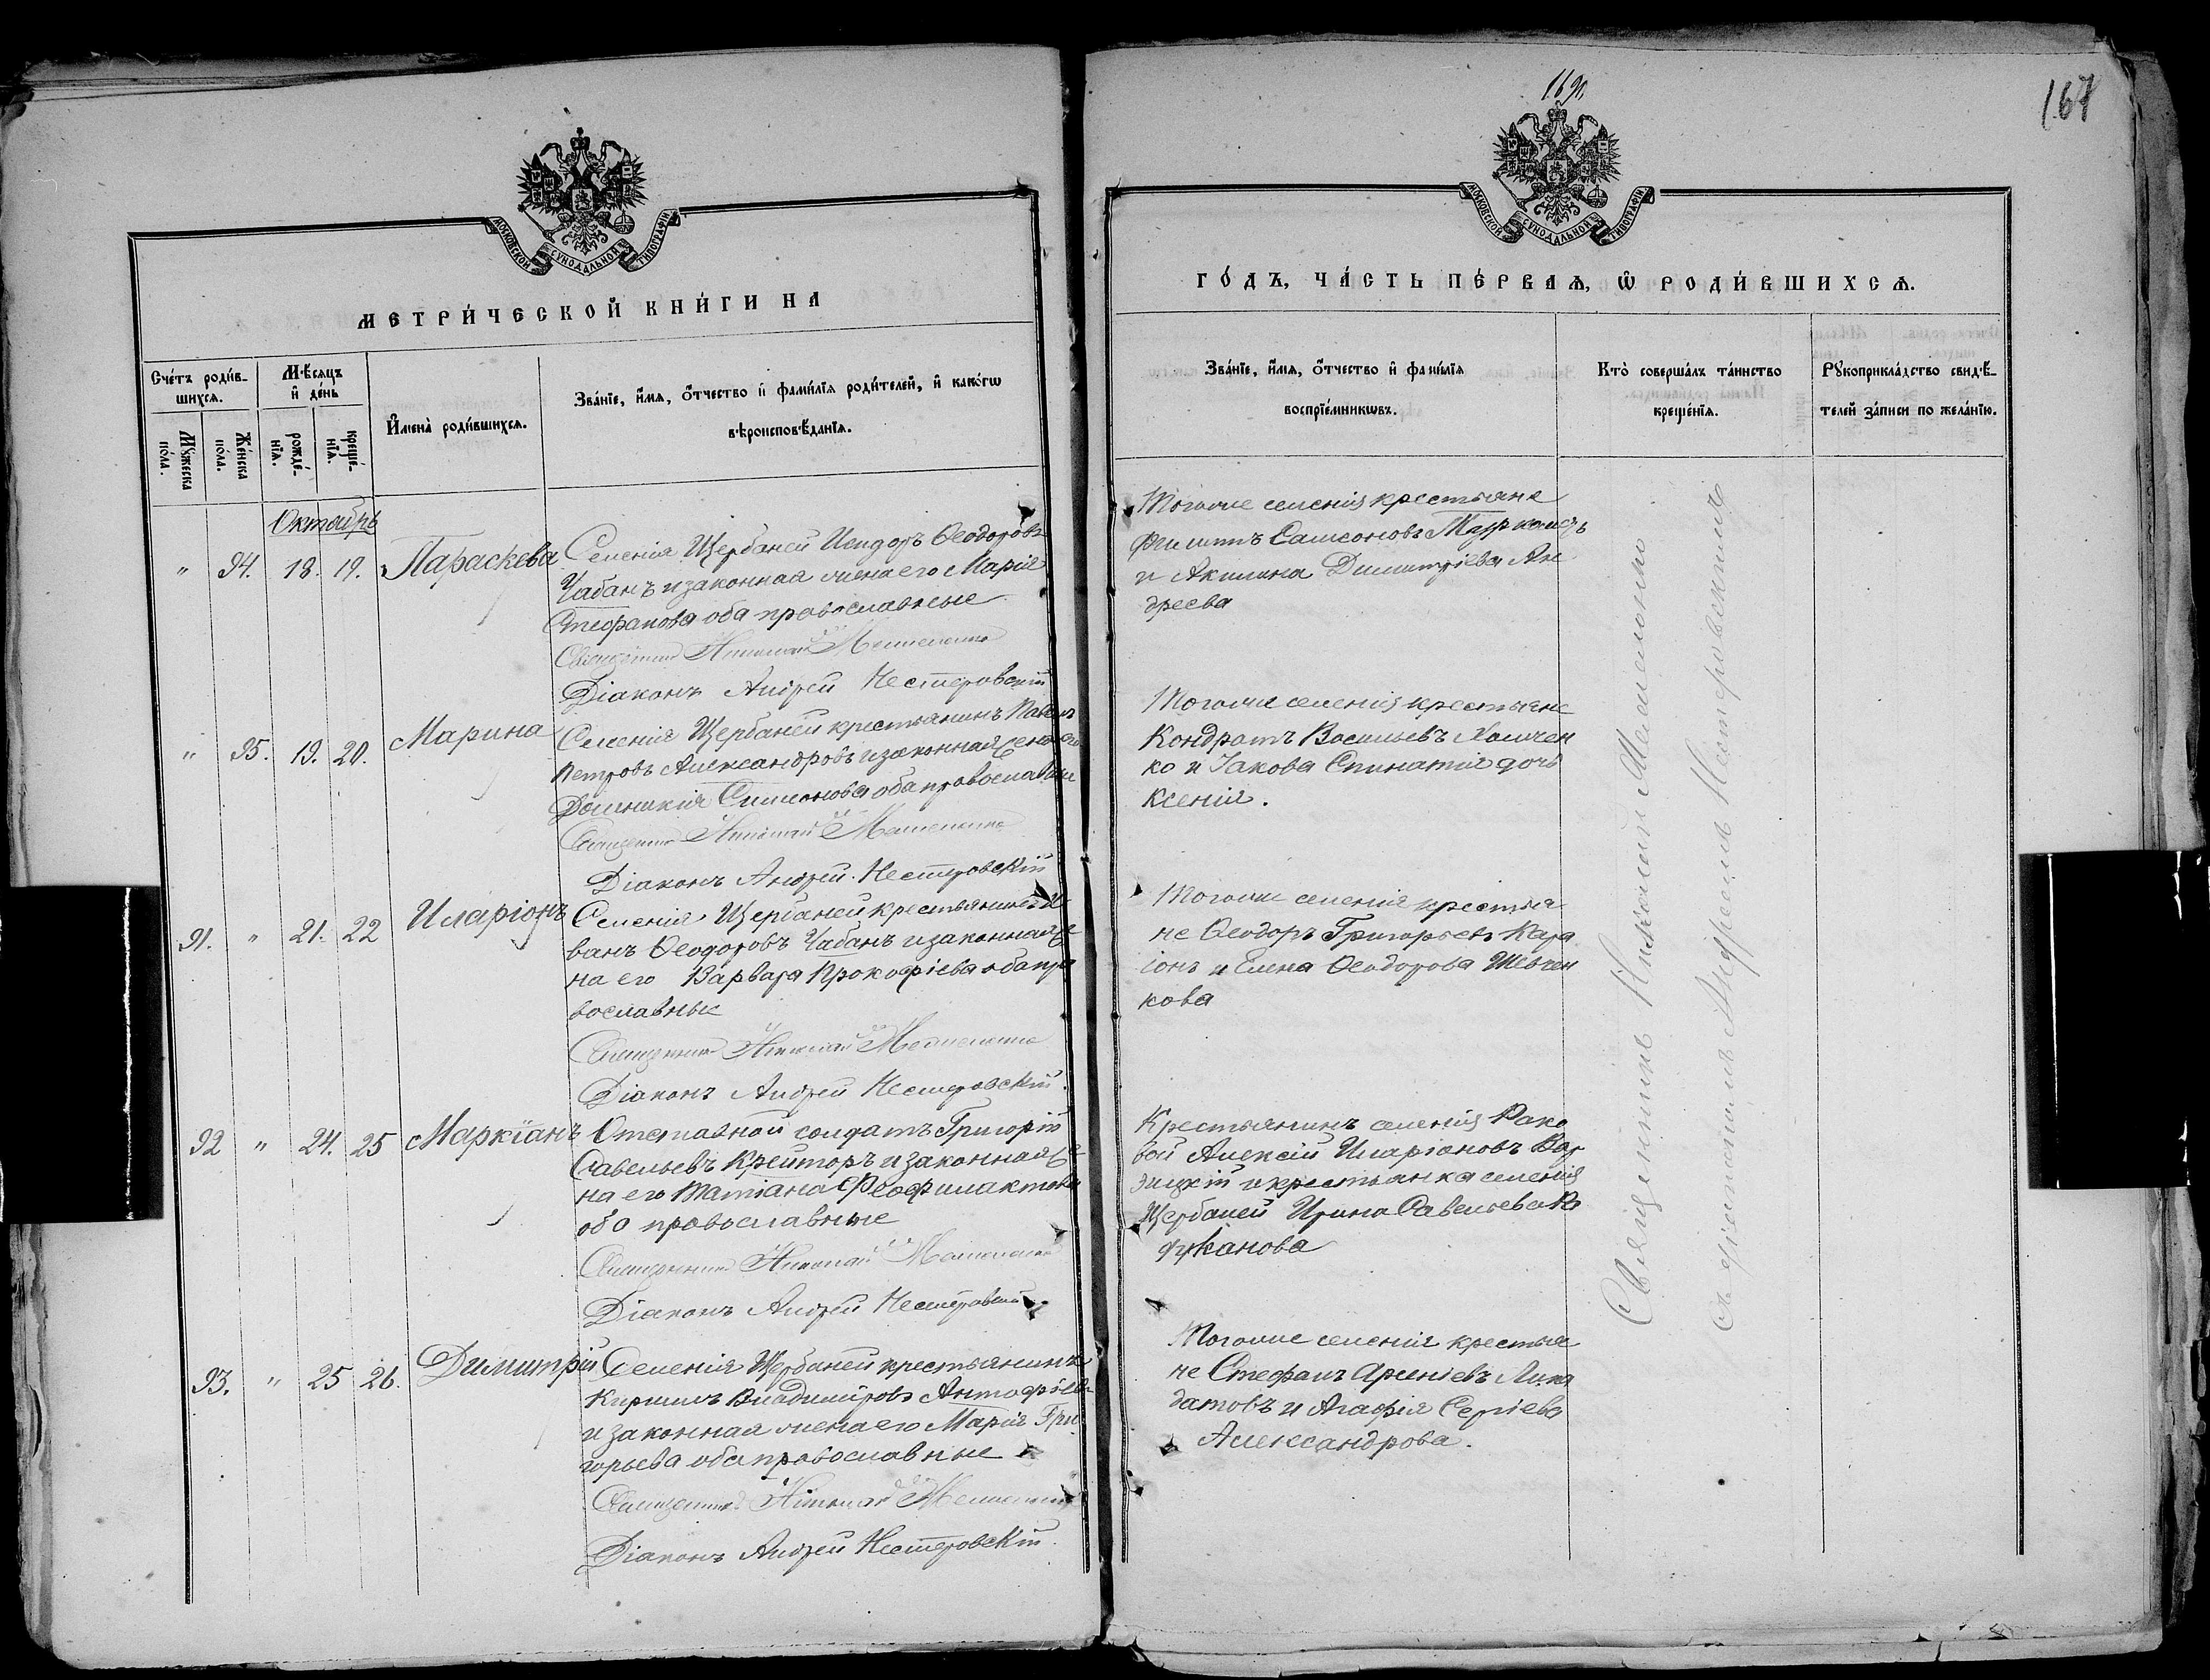 169.
167
МОСКОВСКОЙ СѴНОДАЛЬНОЙ ТИПОГРАФІИ
МЕТРИ́ЧЕСКОЙ КНИ́ГИ НА
Сче́тъ роди́в-
шихсѧ.
Мѣ́сѧцъ
и҆ де́нь
И҆мена̀ роди́вшихсѧ.
Зва́нїе, и҆́мѧ, ѻ҆́тчество и҆ фами́лїѧ роди́телей, и҆ како́гѡ
вѣроисповѣ́данїѧ.
Мꙋ́жеска
по́ла.
Же́нска
по́ла.
рожде́-
нїѧ.
креще́-
нїѧ.
Октябрь
" 94. 18. 19. Параскева
Селенія Щербаней Исидоръ Ѳеодоровъ
Чабанъ и законная жена его Марія
Стефанова оба православные
Священникъ Николай
Діаконъ Андрей Нестеровскій
" 95. 19. 20. Марина
Селенія Щербаней крестьянинъ Павелъ
Петровъ Александровъ и законная жена его
Домникія Симионова оба православные
Священникъ Николай
Діаконъ Андрей Нестеровскій
91. " 21. 22 Иларіонъ
Селенія Щербаней крестьянинъ И
ванъ Ѳеодоровъ Чабанъ и законная же
на его Варвара Прокофіева оба пра
вославные
Священникъ Николай
Діаконъ Андрей Нестеровскій.
92 " 24. 25 Маркіанъ
Отставной солдатъ Григорій
Савельевъ Крейторъ и законная же
на его Татіана Феофилактова
оба православные
Священникъ Николай
Діаконъ Андрей Нестеровскій
93. " 25 26. Димитрій
Селенія Щербаней крестьянинъ
Кириллъ Владиміровъ Антофіевъ
и законная жена его Марія Гри
горьева оба православные
Священникъ Николай
Діаконъ Андрей Нестеровскій.
МОСКОВСКОЙ СѴНОДАЛЬНОЙ ТИПОГРАФІИ
ГО́ДЪ, ЧА́СТЬ ПЕ́РВАѦ, Ѡ҆ РОДИ́ВШИХСѦ.
Зва́нїе, и҆́мѧ, ѻ҆́тчество и҆ фами́лїѧ
воспрїе́мникѡвъ.
Кто̀ соверша́лъ та́инство
креще́нїѧ.
Рꙋкоприкла́дство свидѣ́-
телей за́писи по жела́нїю.
Тогоже селенія крестьяне
Филиппъ Самсоновъ
и Акилина Димитріева Ан
дреева
Тогоже селенія крестьяне
Кондратъ Васильевъ
ко и Іакова Спинатія дочь
Ксенія.
Тогоже селенія крестья
не Ѳеодоръ Григорьевъ Кара
іонъ и Елена Ѳеодорова Шевчен
кова
Крестьянинъ селенія Рако
вой Алексій Иларіоновъ Вар
зицкій и крестьянка селенія
Щербаней Ирина Савельева Ка
зуканова
Тогоже селенія крестья
не Стефанъ Арсеніевъ Лика
датовъ и Агафія Сергіева
Александрова.
Священникъ Николай
съ діакономъ Андреемъ Нестеровскимъ